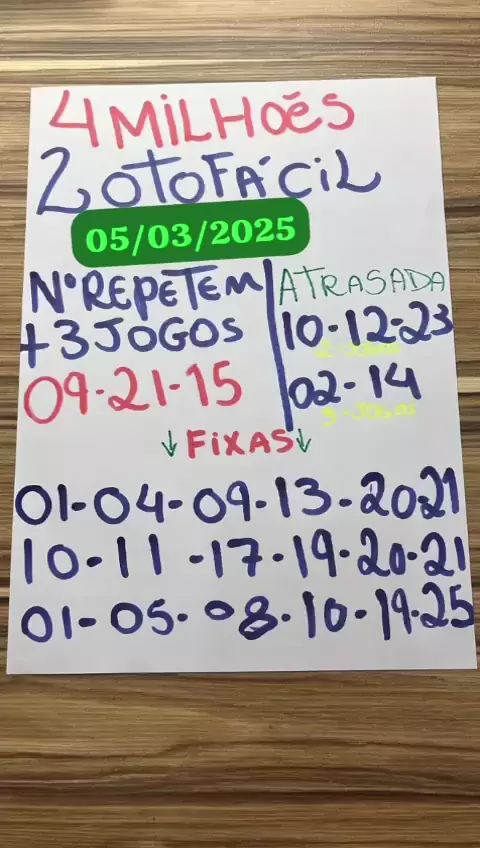 4 MiLHOẽS
LOTOFÁCiL
05/03/2025
Nº REPETEM
+3 JOGOS
09-21-15
ATRASADA
10-12-23
02-14
↓ FiXAS ↓
01-04-09-13-20-21
10-11-17-19-20-21
01-05-08-10-19-25